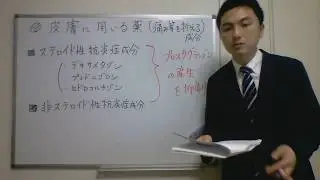 ② 皮膚に用いる薬 (痛み等を抑える成分)
■ ステロイド性抗炎症成分
デキサメタゾン
プレドニゾロン
ヒドロコルチゾン
プロスタグランジン
の産生
を抑制
■ 非ステロイド性抗炎症成分